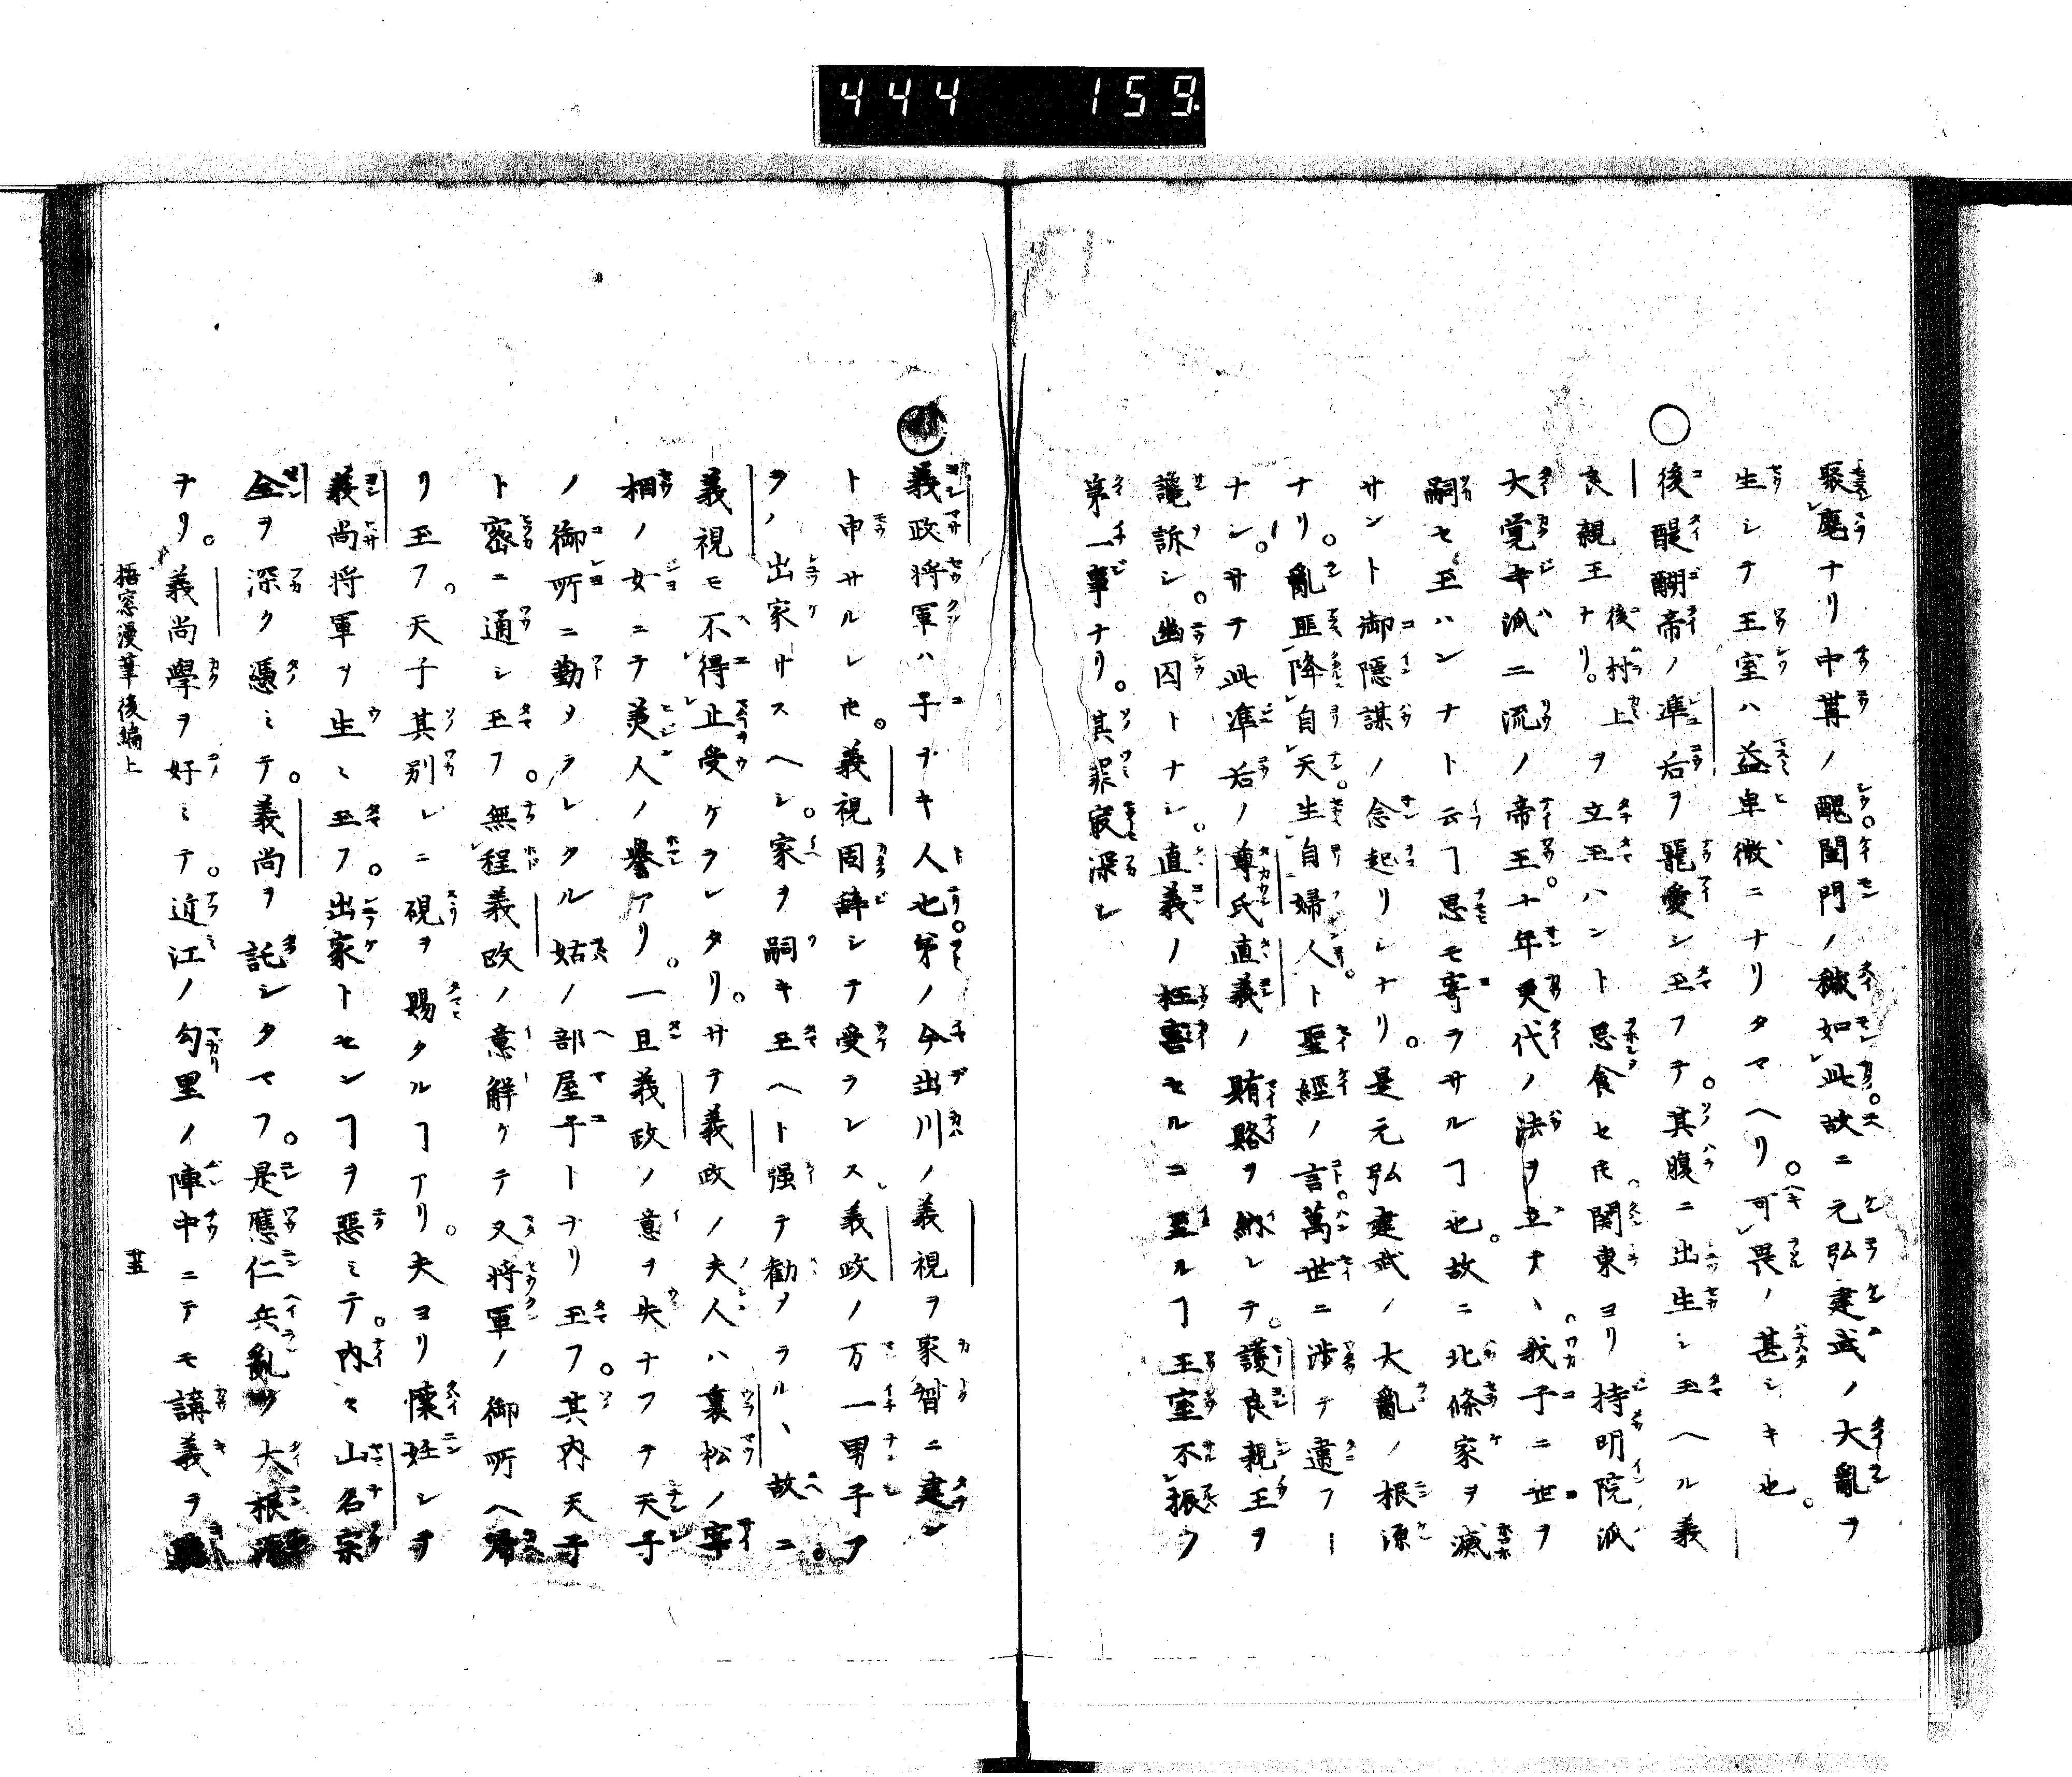 444 159
聚麀ナリ中冓ノ醜閨門ノ穢如此故ニ元弘建武ノ大亂ヲ
生シテ王室ハ益卑微ニナリタマヘリ。可畏ノ甚シキ也。
○後醍醐帝ノ準后ヲ寵愛シ玉フテ。其腹ニ出生シ玉ヘル義
良親王ナリ。後村上ヲ立玉ハント思食セ𪜈関東ヨリ持明院派
大覚寺派二流ノ帝王。十年更代ノ法ヲ立ナヽ。我子ニ世ヲ
嗣セ玉ハンナト云ヿ思モ寄ラサルヿ也。故ニ北條家ヲ滅
サント御隠謀ノ念起リシナリ。是元弘建武ノ大亂ノ根源
ナリ。亂匪降自天。生自婦人ト聖經ノ言。萬世ニ渉テ違フー
ナシ。サテ此準后ノ尊氏直義ノ賄賂ヲ納レテ。護良親王ヲ
讒訴シ。幽囚トナシ。直義ノ枉害セルニ至ルヿ王室不振ノ
第一事ナリ。其罪最深シ
○義政将軍ハ子ナキ人也。弟ノ今出川ノ義視ヲ家督ニ建ン
ト申サルレ𪜈。義視固辞シテ受ラレス義政ノ万一男子ア
ラハ出家サスヘシ。家ヲ嗣キ玉ヘト强テ勧メラルヽ故ニ。
義視モ不得止受ケラレタリ。サテ義政ノ夫人ハ裏松ノ宰
相ノ女ニテ美人ノ譽アリ。一旦義政ノ意ヲ失ナフテ天子
ノ御所ニ勤メラレタル姑ノ部屋子トナリ玉フ。其内天子
ト密ニ通シ玉フ。無程義政ノ意解ケテ又将軍ノ御所ヘ帰
リ玉フ。天子其別レニ硯ヲ賜タルヿアリ。夫ヨリ懐妊シヲ
義尚将軍ヲ生ミ玉フ。出家トセンヿヲ惡ミテ。内々山名宗
全ヲ深ク憑ミテ。義尚ヲ託シタマフ。是應仁兵亂ノ大根源
ナリ。義尚學ヲ好ミテ。近江ノ勾里ノ陣中ニテモ講義ヲ
梧窓漫筆後編上 廿五